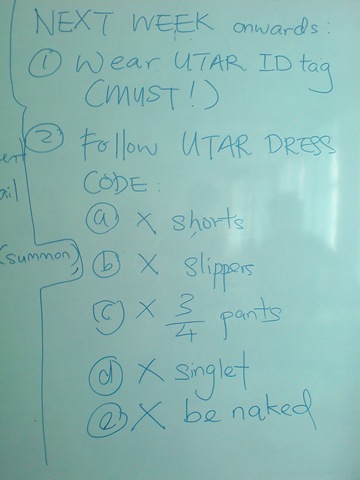 NEXT WEEK onwards:
① Wear UTAR ID tag
(MUST!)
② Follow UTAR DRESS
CODE:
ⓐ X shorts
(summon)
ⓑ X slippers
ⓒ X 3/4 pants
ⓓ X singlet
ⓔ X be naked